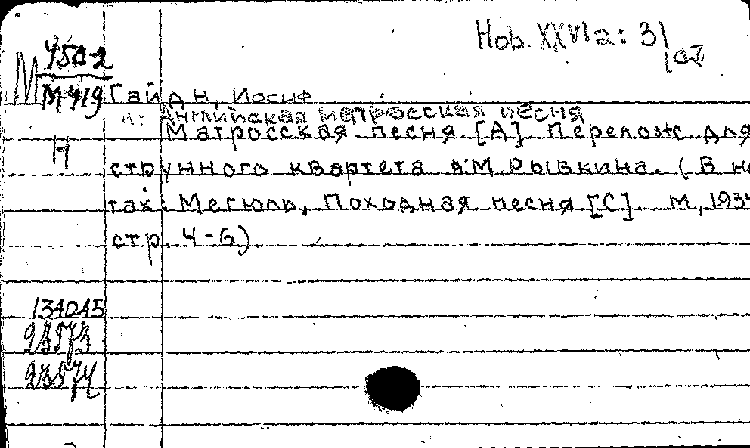 Hob. XXVIa: 31
M 450-2
М 419
Гайдн, Иосиф
н: Английская матросская песня
Матросская песня [А]. Перелож. для
Н
струнного квартета М. Рывкина. (В но
тах: Мегюль, Походная песня [С]. М, 193
стр. 4-6).
134045